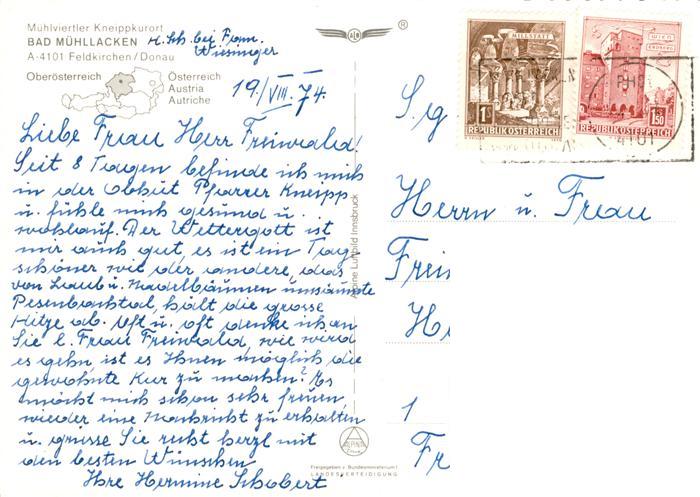 Mühlviertler Kneippkurort
BAD MÜHLLACKEN
A-4101 Feldkirchen/Donau
H. Sch. bei Fam.
Wiesinger
Oberösterreich
Österreich
Austria
Autriche
19./VIII. 74.
Liebe Frau Herr Freiwald!
Seit 8 Tagen befinde ich mich
in der Obhut Pfarrer Kneipp
u. fühle mich gesund u.
wohlauf. Der Wettergott ist
mir auch gut, es ist ein Tag
schöner wie der andere, das
von Laub u. Nadelbäumen umsäumte
Pesenbachtal hält die grosse
Hitze ab. Oft u. oft denke ich an
Sie l. Frau Freiwald, wie wird
es gehn, ist es Ihnen möglich die
gewohnte Kur zu machen? Es
möcht mich schon sehr freuen,
wieder eine Nachricht zu erhalten
u. grüsse Sie recht herzl mit
den besten Wünschen
Ihre Hermine Schobert
Alpine Luftbild Innsbruck
ALPINE
Freigegeben v. Bundesministerium f.
LANDESVERTEIDIGUNG
®
MILLSTATT
1S
REPUBLIK ÖSTERREICH
WIEN
ERDBERG
1.50
REPUBLIK ÖSTERREICH
4101
S. g.
Herrn u. Frau
Frei
H
1
Fr